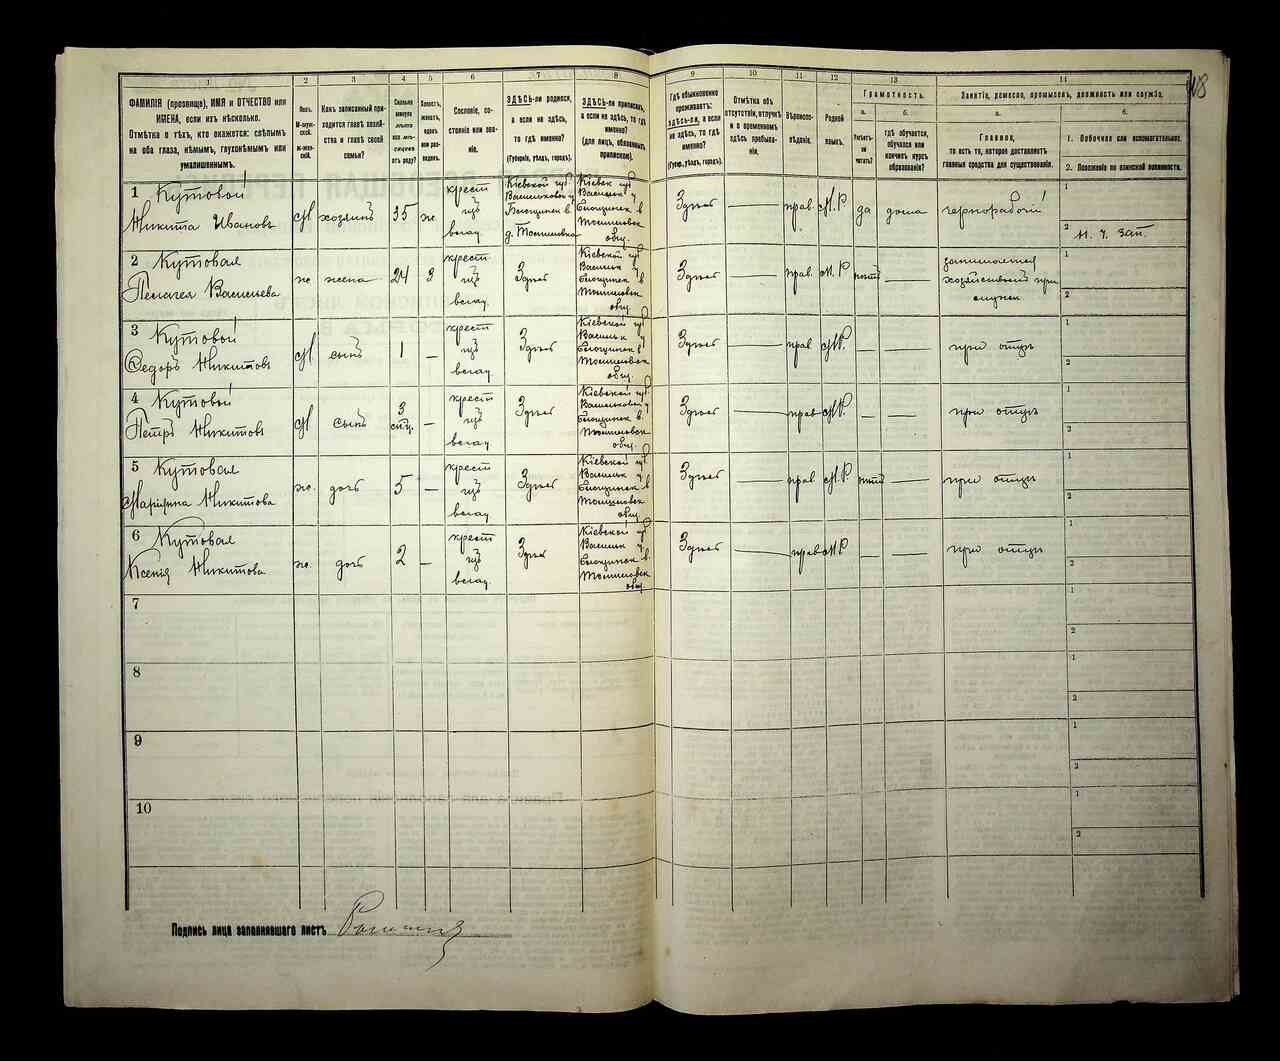 108
1 2 3 4 5 6 7 8 9 10 11 12 13 14
ФАМИЛІЯ (прозвище), ИМЯ и ОТЧЕСТВО или
ИМЕНА, если ихъ нѣсколько.
Отмѣтка о тѣхъ, кто окажется: слѣпымъ
на оба глаза, нѣмымъ, глухонѣмымъ или
умалишеннымъ.
Полъ.
М-муж-
ской.
Ж-жен-
скій.
Какъ записанный при-
ходится главѣ хозяй-
ства и главѣ своей
семьи?
Сколько
минуло
лѣтъ
или мѣ-
сяцевъ
отъ роду?
Холостъ,
женатъ,
вдовъ
или раз-
веденъ.
Сословіе, со-
стояніе или зва-
ніе.
ЗДѢСЬ-ли родился,
а если не здѣсь,
то гдѣ именно?
(Губернія, уѣздъ, городъ).
ЗДѢСЬ-ли приписанъ,
а если не здѣсь, то гдѣ
именно?
(для лицъ, обязанныхъ
припискою).
Гдѣ обыкновенно
проживаетъ:
ЗДѢСЬ-ли, а если
не здѣсь, то гдѣ
именно?
(Губерн., уѣздъ, городъ).
Отмѣтка объ
отсутствіи, отлучкѣ
и о временномъ
здѣсь пребыва-
ніи.
Вѣроиспо-
вѣданіе.
Родной
языкъ.
Грамотность.
а.
Умѣетъ-
ли
читать?
б.
гдѣ обучается,
обучался или
кончилъ курсъ
образованія?
Занятіе, ремесло, промыселъ, должность или служба.
а.
Главное,
то есть то, которое доставляетъ
главныя средства для существованія.
б.
1. Побочное или вспомогательное.
2. Положеніе по воинской повинности.
1 Кутовой
Никита Ивановъ
М хозяинъ 35 ж.
крест
изъ
владѣ.
Кіевской губ
Васильков у
д. Томиловка
Кіевск губ
Васильк у
Томиловск
общ.
Здѣсь — прав. М.Р да дома чернорабочій
1
2 Н. Ч. Зап.
2 Кутовая
Пелагея Васильева
ж жена 24 з
крест
изъ
Здѣсь
Кіевской губ
Васильк у
Томиловск
общ.
Здѣсь — прав. М.Р нѣтъ —
занимается
хозяйствомъ при
1
2
3 Кутовой
Ѳедоръ Никитовъ
М сынъ 1 —
крест
изъ
Здѣсь
Кіевской губ
Васильк у
Томиловск
общ.
Здѣсь — прав М.Р. — — при отцѣ
1
2
4 Кутовой
Петръ Никитовъ
М сынъ 3 —
крест
изъ
Здѣсь
Кіевской губ
Васильковск у
Томиловск
общ.
Здѣсь — прав М.Р. — — при отцѣ
1
2
5 Кутовая
Марфина Никитова
ж. дочь 5 —
крест
изъ
Здѣсь
Кіевской губ
Васильк у
Томиловск
общ.
Здѣсь — прав М.Р нѣтъ — при отцѣ
1
2
6 Кутовая
Ксенія Никитова
ж. дочь 2 —
крест
изъ
Здѣсь
Кіевской губ
Васильк у.
Томиловск
общ.
Здѣсь — прав М.Р — — при отцѣ
1
2
7
1
2
8
1
2
9
1
2
10
1
2
Подпись лица заполнявшаго листъ